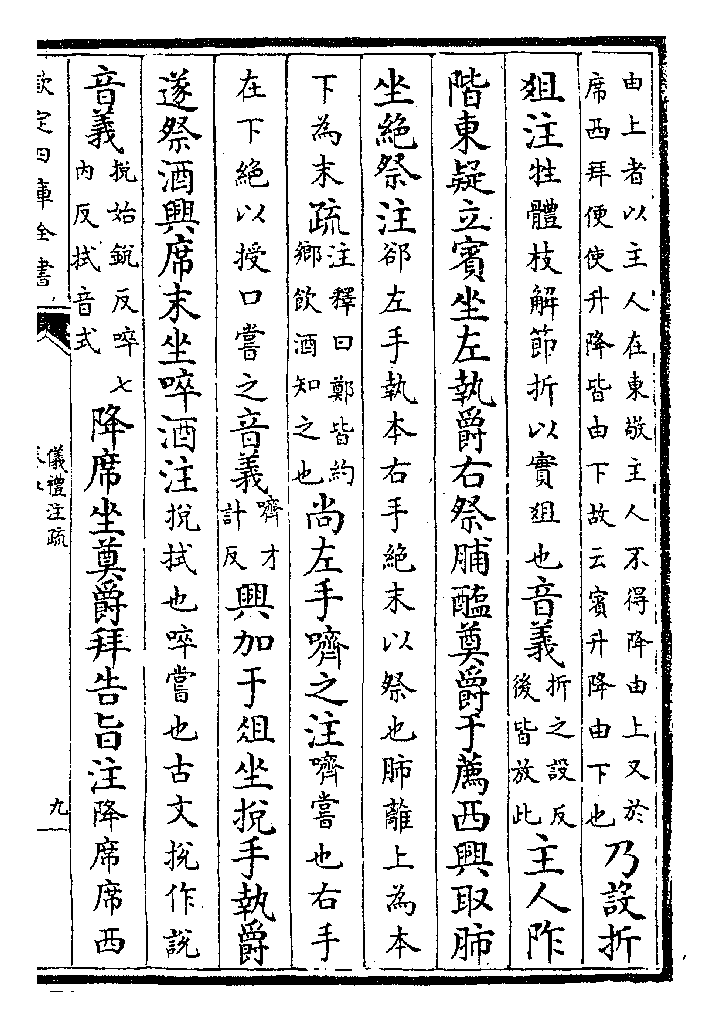 由上者以主人在東敬主人不得降由上又於
席西拜便使升降皆由下故云賓升降由下也
乃設折
俎注牲體枝解節折以實俎也音義
折之設反
後皆放此
主人阼
階東疑立賓坐左執爵右祭脯醢奠爵于薦西興取肺
坐絶祭注郤左手執本右手絶末以祭也肺離上為本
下為末疏
注釋曰鄭皆約
鄉飲酒知之也
尚左手嚌之注嚌嘗也右手
在下絶以授口嘗之音義
嚌才
計反
興加于俎坐挩手執爵
遂祭酒興席末坐啐酒注挩拭也啐嘗也古文挩作說
音義
挩始銳反啐七
内反拭音式
降席坐奠爵拜告旨注降席席西
欽定四庫全書
儀禮注疏
九